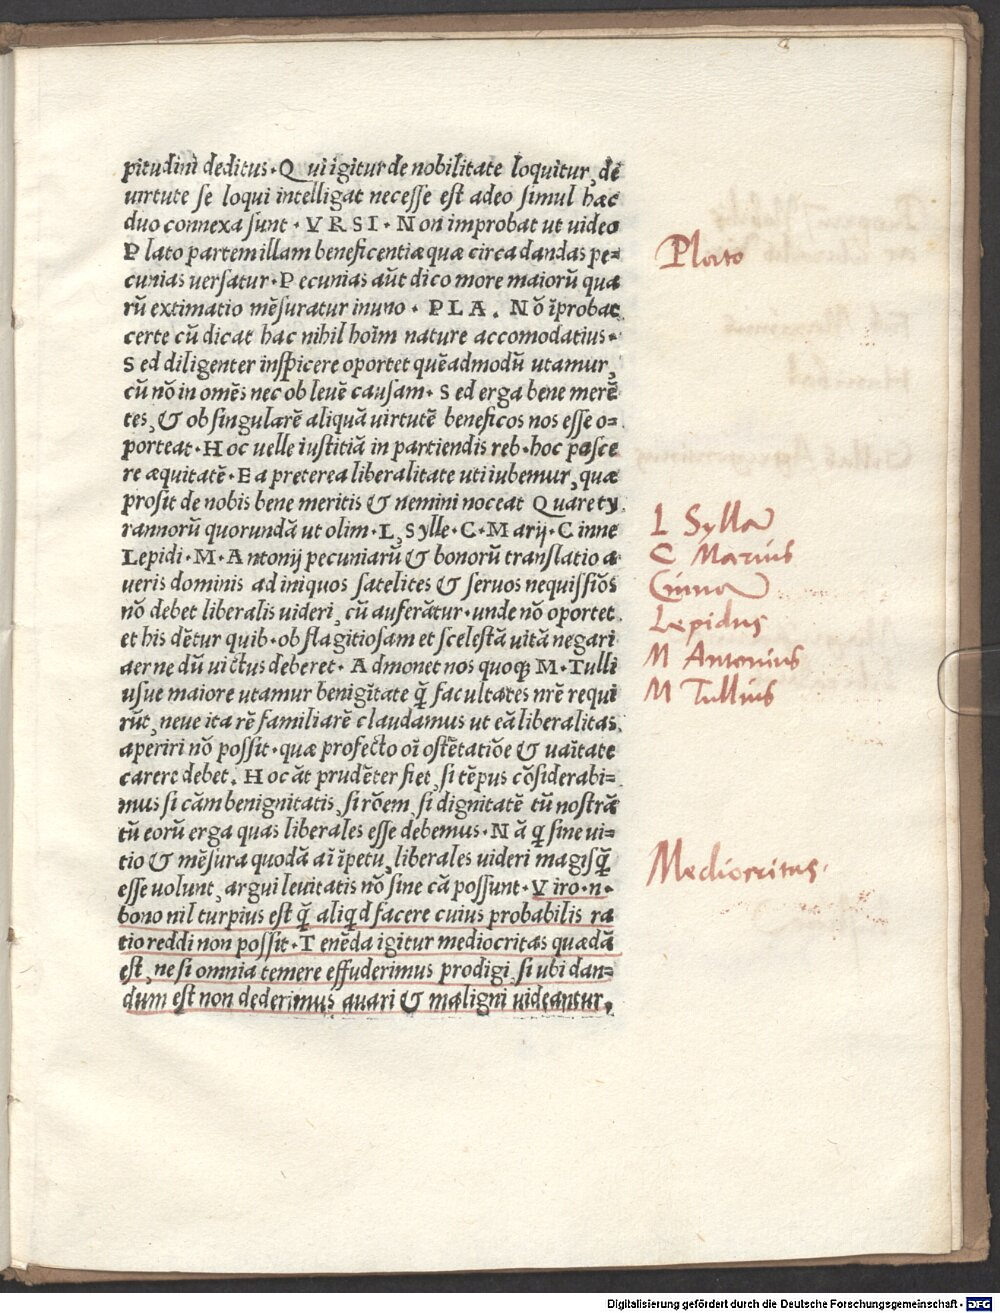 pitudini deditus. Qui igitur de nobilitate loquitur, de
uirtute se loqui intelligat necesse est adeo simul hæc
duo connexa sunt. VRSI. Non improbat ut uideo
Plato partem illam beneficentiæ quæ circa dandas pe=
cunias uersatur. Pecunias aūt dico more maiorū qua
rū extimatio mēsuratur in uno. PLA. Nō īprobac
certe cū dicat hac nihil hoim nature accomodatius.
Sed diligenter inspicere oportet quēadmodū utamur,
cū nō in omēs nec ob leuē causam. Sed erga bene merē
tes, & ob singularē aliquā uirtutē beneficos nos esse o=
porteat. Hoc uelle iustitiā in partiendis reb. hoc pasce
re æquitatē. Ea preterea liberalitate uti iubemur, quæ
prosit de nobis bene meritis & nemini noceat Quare ty
rannorū quorundā ut olim. L, Sylle. C. Marij. Cinne
Lepidi. M. Antonij pecuniarū & bonorū translatio a
ueris dominis ad iniquos satelites & seruos nequissīos
nō debet liberalis uideri, cū auferātur. unde nō oportet
et his dētur quib. ob flagitiosam et scelestā uitā negari
aer ne dū uictus deberet. Admonet nos quoq; M. Tulli
us ue maiore utamur benigītate q̄ facultates nrē requi
rūt, neue ita rē familiarē claudamus ut eā liberalitas
aperiri nō possit. quæ profecto oī ostētatiōe & uaītate
carere debet. Hoc āt prudēter fiet, si tēpus cōsiderabi=
mus si cām benignitatis, si rōem, si dignitatē tū nostrā
tū eorū erga quas liberales esse debemus. Nā q̄ sine ui=
tio & mēsura quodā aī īpetu, liberales uideri magisq̄
esse uolunt, argui leuitatis nō sine cā possunt. Viro. n.
bono nil turpius est q̄ aliqd facere cuius probabilis ra
tio reddi non possit. Tenēda igitur mediocritas quædā
est, ne si omnia temere effuderimus prodigi, si ubi dan=
dum est non dederimus auari & maligni uideantur.
Plato
L Sylla
C Marius
Cinna
Lepidus
M Antonius
M Tullius
Mediocritas.
Digitalisierung gefördert durch die Deutsche Forschungsgemeinschaft - DFG